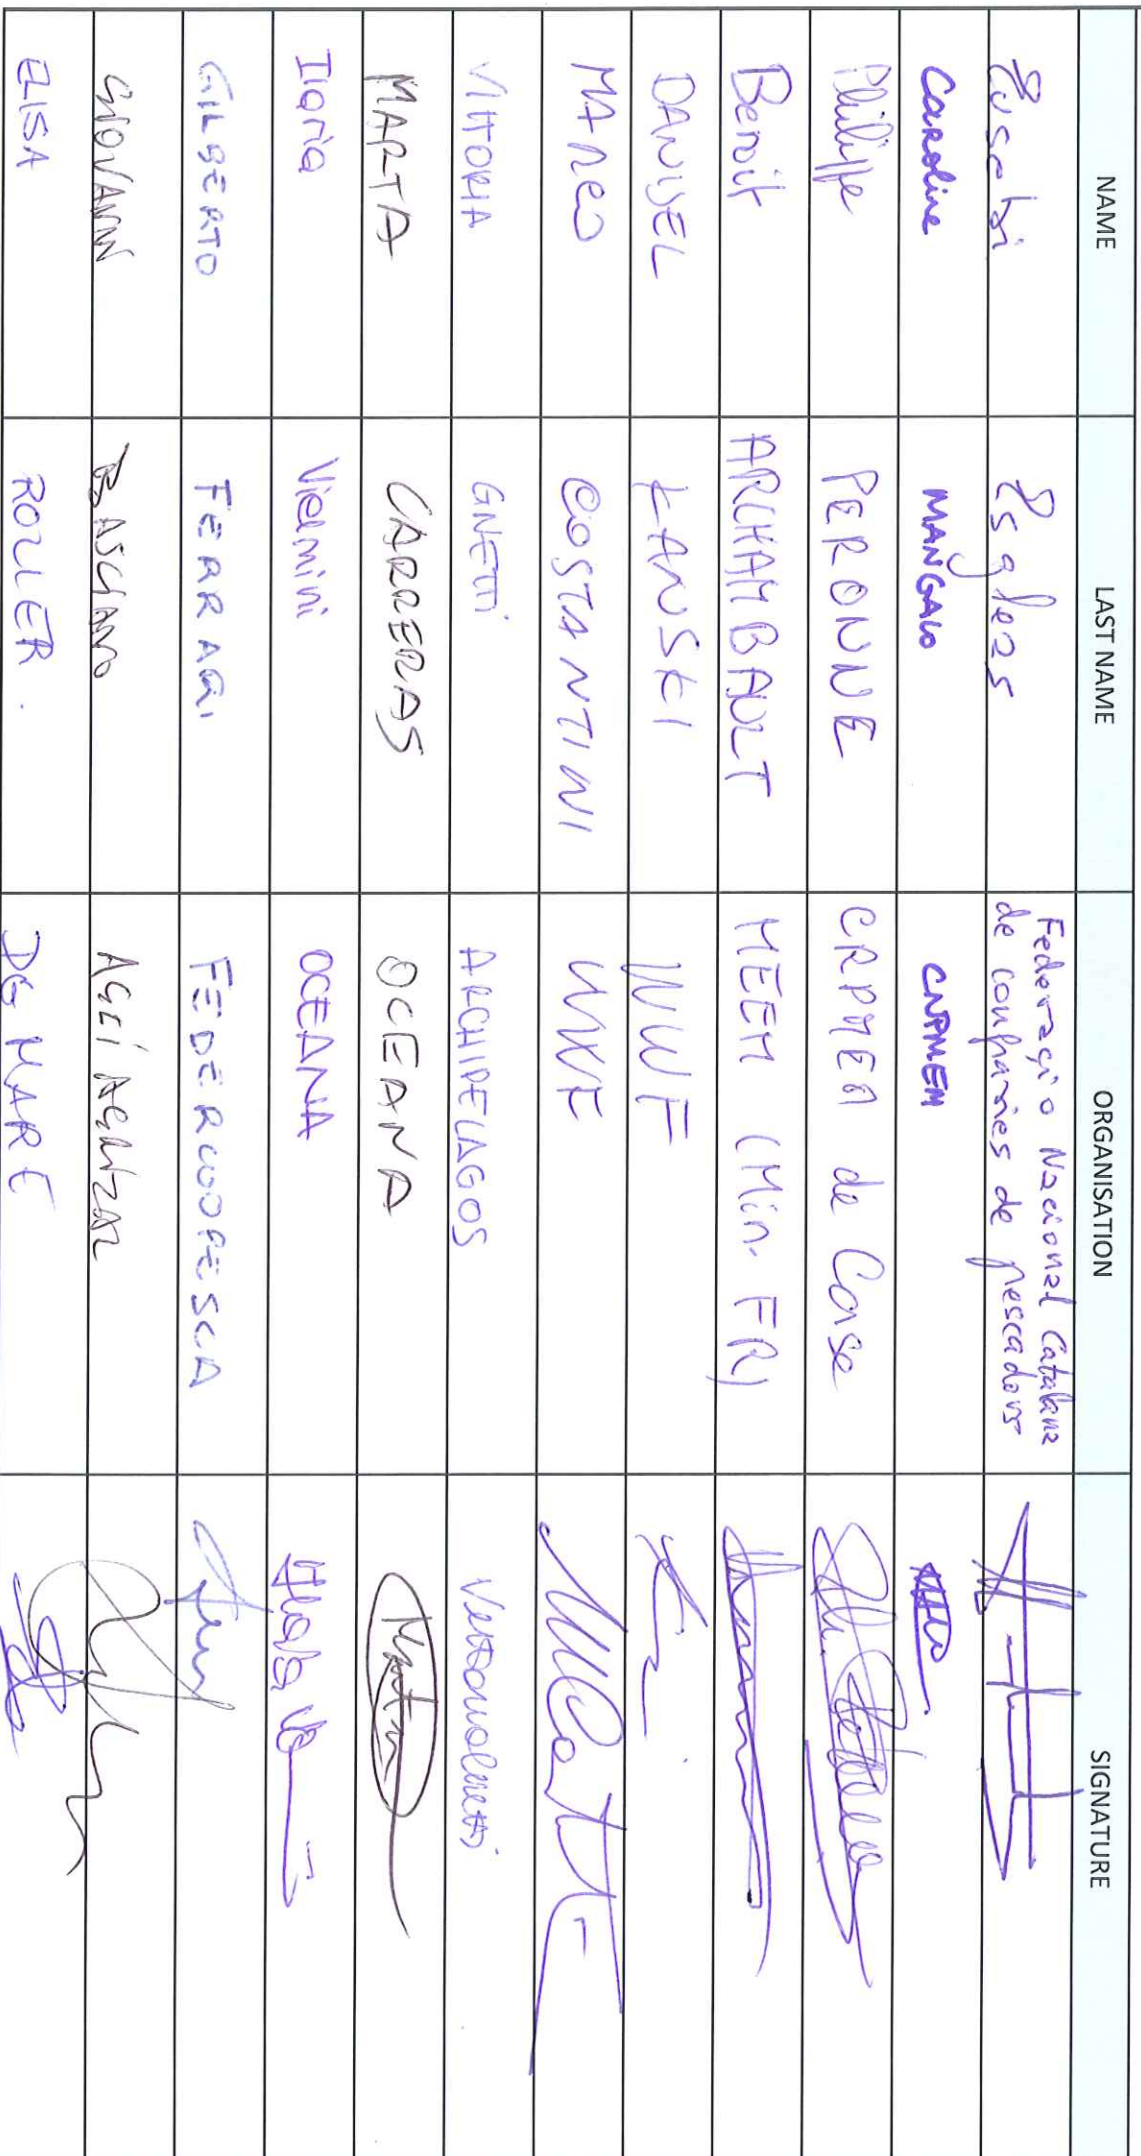 NAME LAST NAME ORGANISATION SIGNATURE
Eusebi Esgleas Federació Nacional Catalana
de confraries de pescadors
Caroline MANGALO CNPMEM
Philippe PERONNE CRPMEM de Corse
Benoit ARCHAMBAULT MEEM (Min. FR)
DANIJEL KANSKI WWF
MARCO COSTANTINI WWF
VITTORIA GNETTI ARCHIPELAGOS
MARTA CARRERAS OCEANA Marta
Ilaria Vielmini OCEANA
GILBERTO FERRARI FEDERCOOPESCA
BASCIANO AGCI AGRITAL
ELISA ROLLER. DG MARE